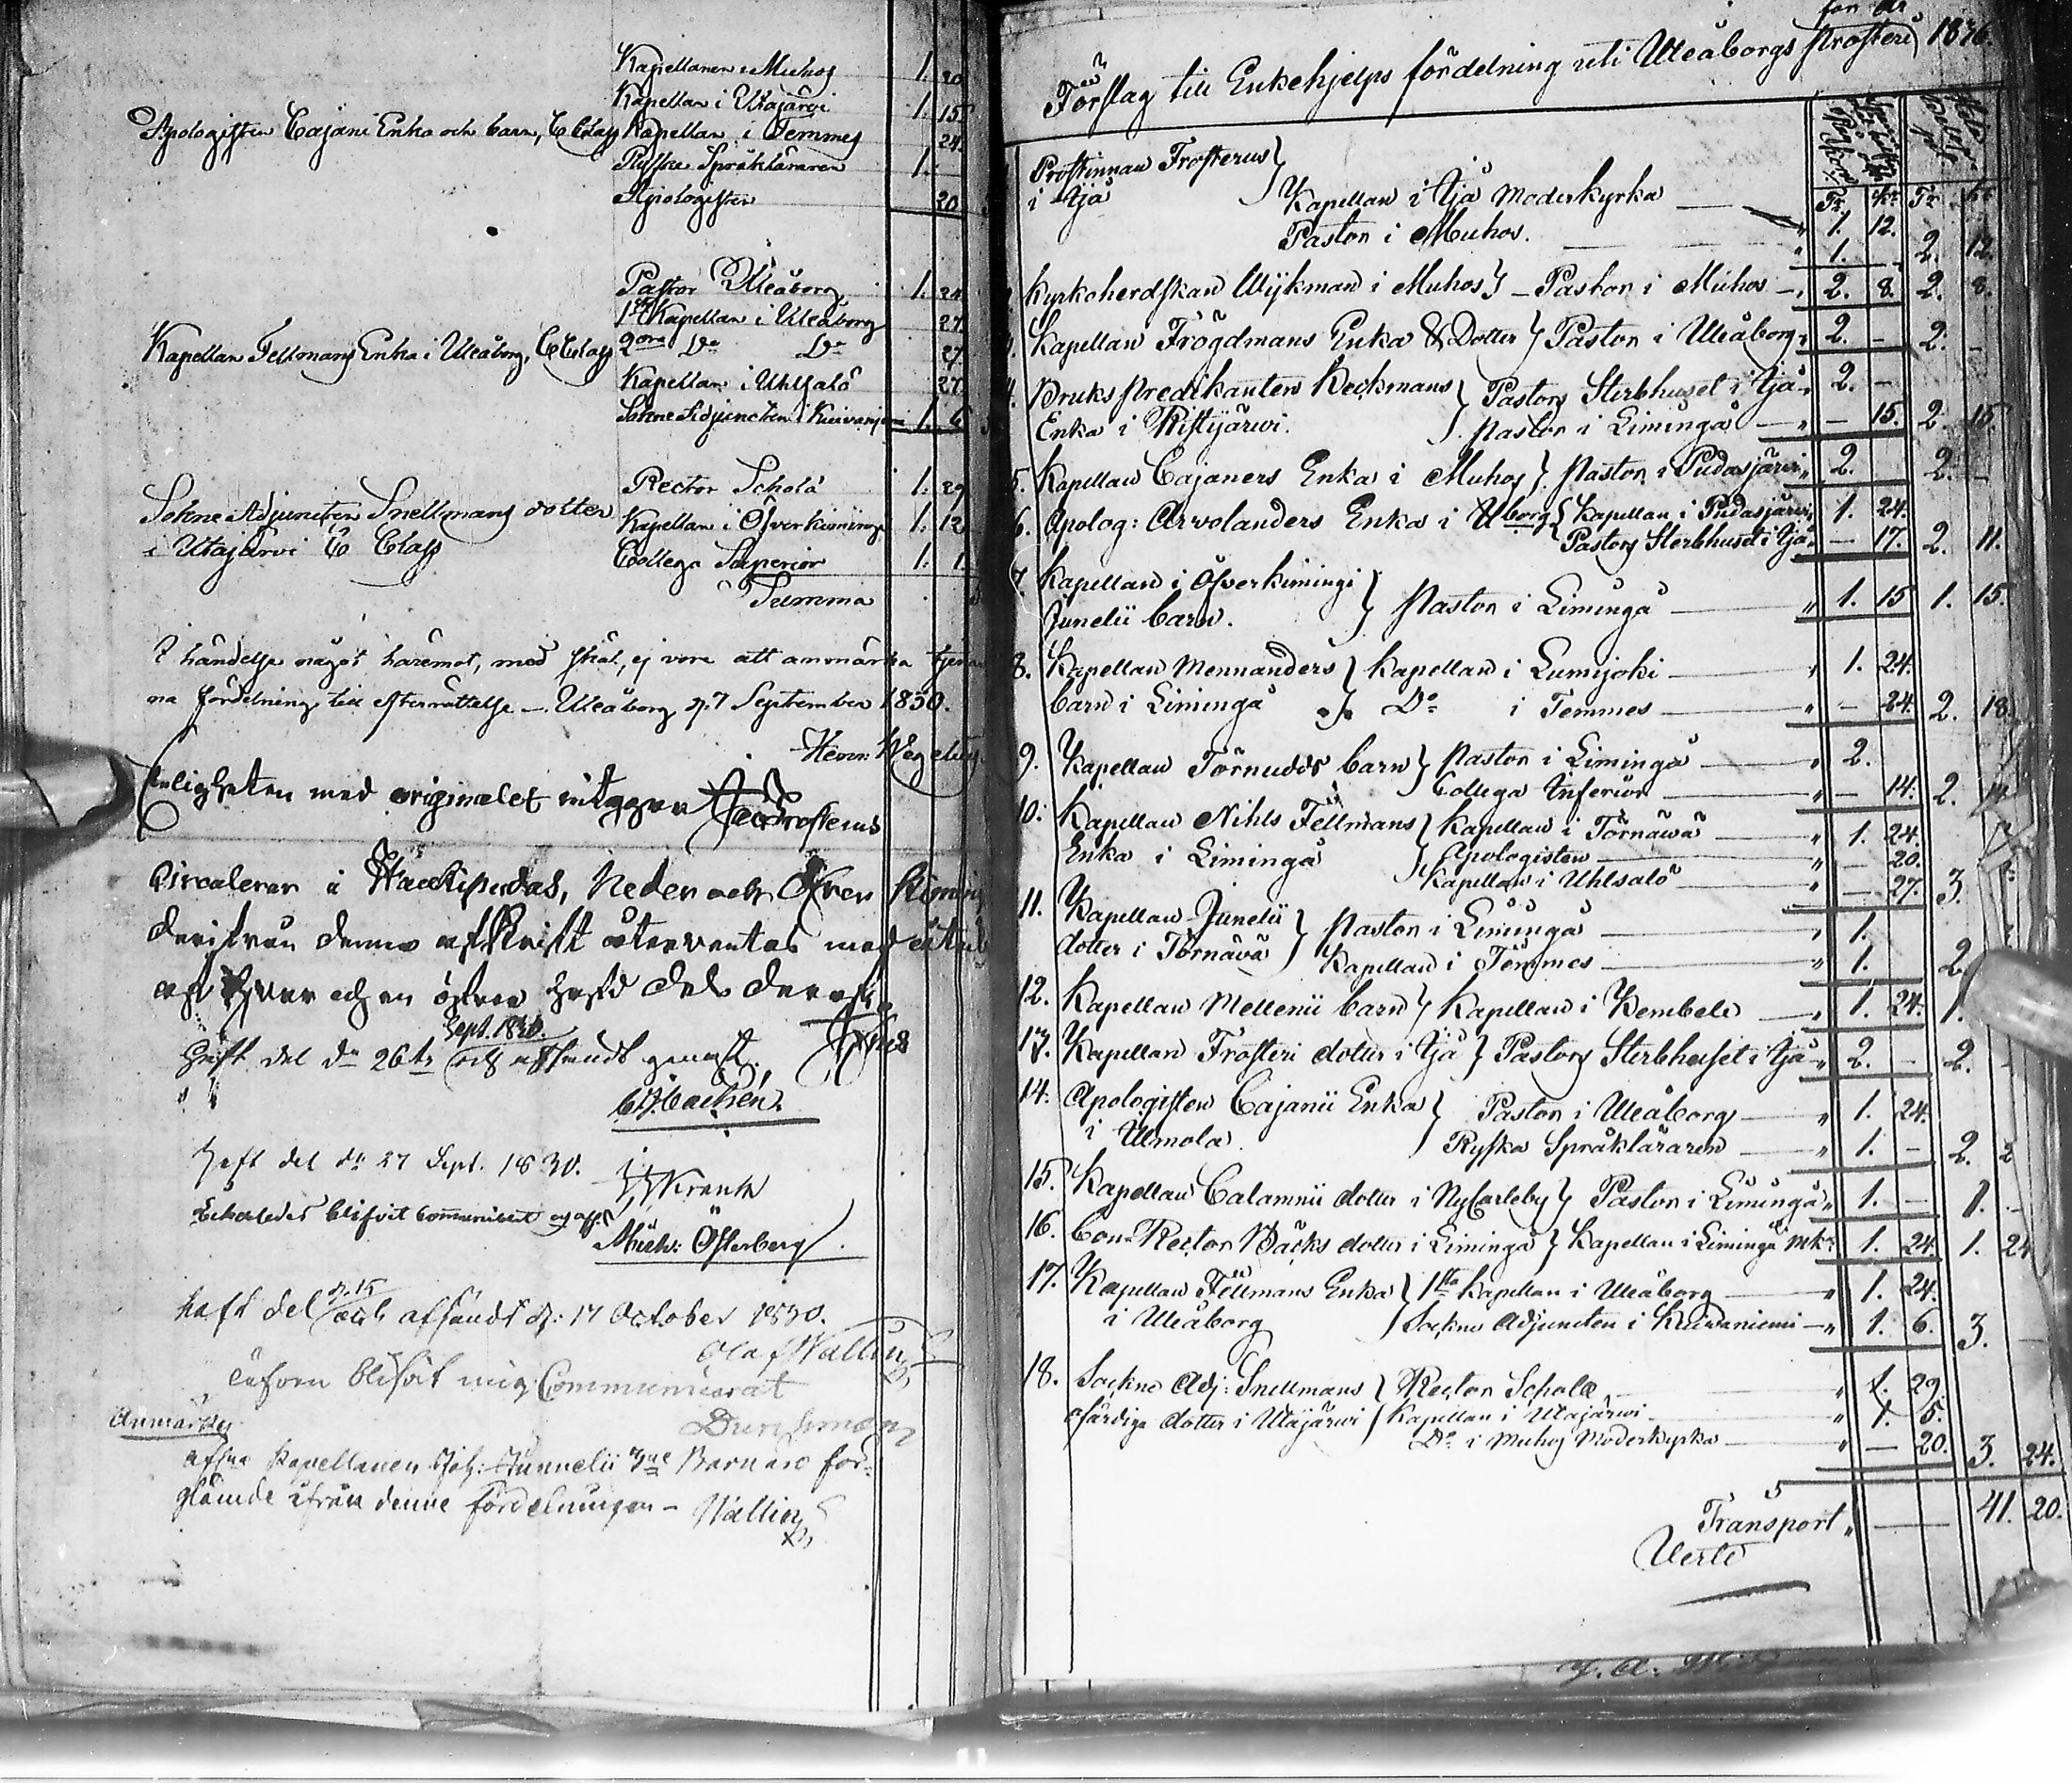 Kapellanen i Muhos 1. 20
Kapellan i Utajärvi 1. 15
Apologisten Cajani Enka och barn, C Class Kapellan i Temmes 24.
Ryska Språkläraren 1. -
Apologisten 20
Pastor Uleåborg 1. 24
1sta Kapellan i Uleåborg 27.
Kapellan Fellmans Enka i Uleåborg, C Class 2dra Do Do 27.
Kapellan i Uhlsalo 27.
Sokne Adjuncten i Kuivaniemi 1. 6
Rector Scholæ 1. 29
Sokne Adjuncten Snellmans dotter Kapellan i Öfverkiminge 1. 12
i Utajärvi C Class Collega Superior 1. 1
Summa
I händelse något häremot, med skäl, ej vore att anmärka tjenar
na fördelning till efterrättelse – Uleåborg d. 7 September 1830.
Herm: Wegelius
Enligheten med originalet intygar Frosterus
Circulerar i Haukipudas, Neder och Öfver Kiming
derifrån denna afskrift återväntas med
Sept. 1830.
Haft del dn 26te och afsändt genast.
Haft del dn 27 Sept. 1830. Krank
Likaledes blifvit communicerat
Mich: Österberg
haft del d. 15 och afsändt d: 17 October 1830.
Olaf Wallin
Äfven blifvit mig Communicerat
Anmärkes
Kapellanen Joh: Junnelii Barn äro för-
glömde ifrån denne fördelningen – Wallin
för År
Förslag till Enkehjelps fördelning uti Uleåborgs Prosteri 1836.
Rr. kr. Rr. kr.
1. Prostinnan Frosterus
i Ijå Kapellan i Ijå Moderkyrka — 1. 12.
Pastor i Muhos. — 1. - 2. 12.
2. Kyrkoherdskan Wijkman i Muhos – Pastor i Muhos – 2. 8. 2. 8.
3. Kapellan Frögdmans Enka & Dotter Pastor i Uleåborg 2. - 2. -
4. Bruks Predikanten Keckmans Pastors Sterbhuset i Ijå 2. -
Enka i Ristijärwi. Pastor i Limingå — - 15. 2. 15.
5. Kapellan Cajaners Enka i Muhos Pastor i Pudasjärwi 2. 2. -
6. Apolog: Arvolanders Enka i Uborg Kapellan i Pudasjärwi 1. 24.
Pastors Sterbhuset i Ijå — 17. 2. 11.
7. Kapellan i Öfverkimingi
Junelii barn. Pastor i Limingå — 1. 15 1. 15.
8. Kapellan Mennanders Kapellan i Lumijoki — 1. 24.
barn i Limingå Do i Temmes — 24. 2. 18.
9. Kapellan Törnudds barn Pastor i Limingå — 2.
Collega Inferior — 14. 2. 14
10. Kapellan Nihls Fellmans Kapellan i Törnäwä — 1. 24.
Enka i Limingå Apologisten — 20.
Kapellan i Uhlsalo — 27. 3.
11. Kapellan Junelii Pastor i Limingå — 1.
dotter i Törnävä Kapellan i Temmes — 1. 2.
12. Kapellan Mellenii barn Kapellan i Kembele — 1. 24. 1.
13. Kapellan Frosteri dotter i Ijå Pastors Sterbhuset i Ijå 2. - 2. -
14. Apologisten Cajanii Enka Pastor i Uleåborg — 1. 24.
i Ulmola. Ryska Språkläraren — 1. - 2.
15. Kapellan Calamnii dotter i NyCarleby Pastor i Limingå 1. - 1. -
16. Con-Rector Bäcks dotter i Limingå Kapellan i Limingå mk: 1. 24. 1. 24
17. Kapellan Fellmans Enka 1sta Kapellan i Uleåborg — 1. 24.
i Uleåborg Sockne Adjuncten i Kuivaniemi — 1. 6. 3. -
18. Sockne Adj: Snellmans Rector Scholæ — 1. 29.
ofärdiga dotter i Utajärwi Kapellan i Utajärwi — 1. 5.
Do i Muhos Moderkyrka — 20. 3. 24.
Transport — 41. 20.
Verte